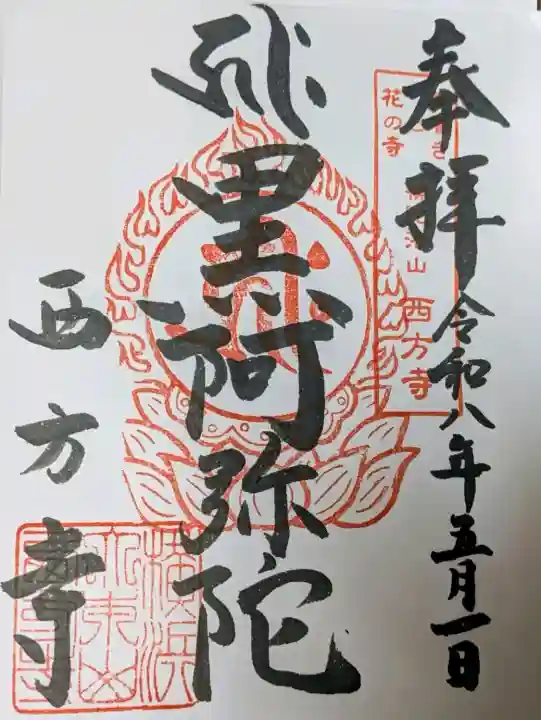 奉拝
令和八年五月一日
花の寺
山
西方寺
黒阿弥陀
西方寺
横浜